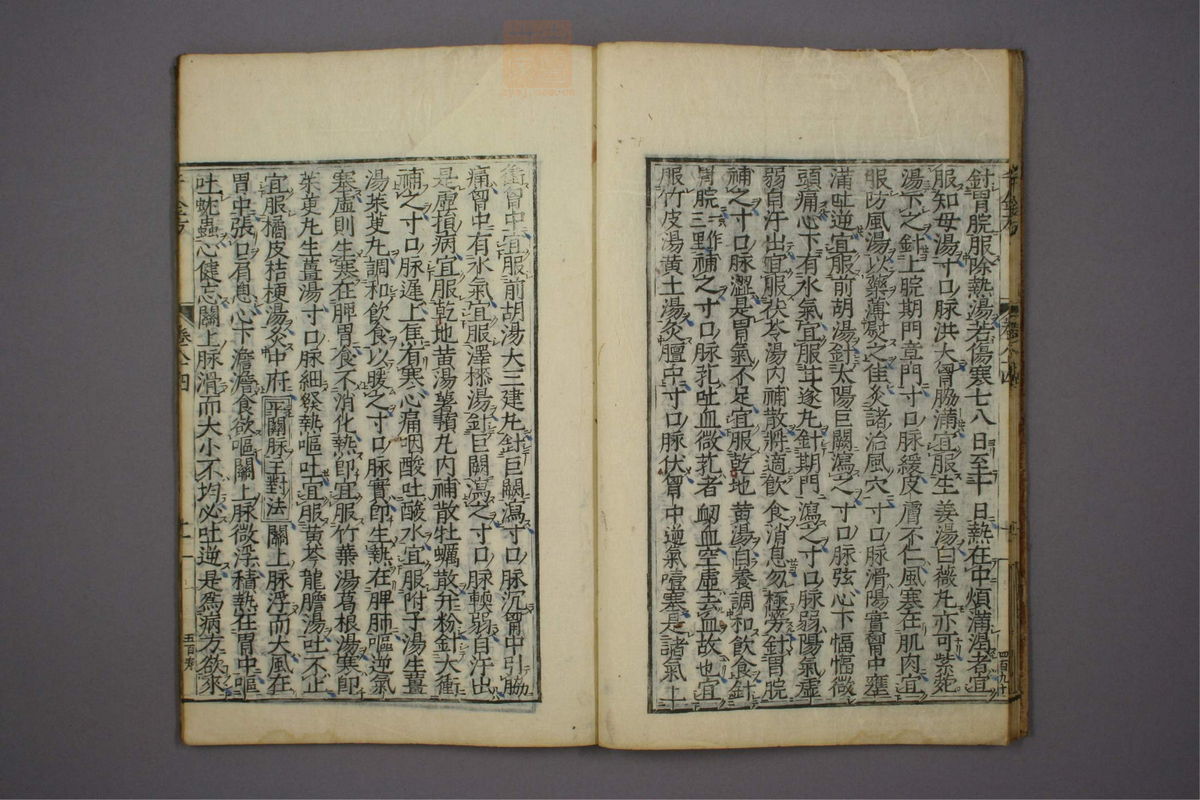 針胃脘服除熱湯若傷寒七八日至十日熱在中煩滿渴者宜
服知母湯寸口脉洪大胷脇滿宜服生姜湯白薇丸亦可紫菀
湯下之針上脘期門章門寸口脉緩皮膚不仁風寒在肌肉宜
服防風湯以藥薄熨之佳灸諸治風穴寸口脉滑陽實胷中壅
滿吐逆宜服前胡湯針太陽巨闕瀉之寸口脉弦心下愊愊微
頭痛心下有水氣宜服甘遂丸針期門瀉之寸口脉弱陽氣虛
弱自汗出宜服茯苓湯内補散將適飲食消息勿極勞針胃脘
補之寸口脉澀是胃氣不足宜服乾地黄湯自養調和飲食針
胃脘一作三里補之寸口脉芤吐血微芤者衂血空虛去血故也宜
服竹皮湯黄土湯灸膻中寸口脉伏胷中逆氣噎塞是諸氣上
衝胷中宜服前胡湯大三建丸針巨闕瀉寸口脉沉胷中引脇
痛胷中有水氣宜服澤㯂湯針巨闕瀉之寸口脉軟弱自汗出
是虛損病宜服乾地黄湯薯蕷丸内補散牡蠣散并粉針太衝
補之寸口脉遲上焦有寒心痛咽酸吐酸水宜服附子湯生薑
湯茱萸丸調和飲食以暖之寸口脉實即生熱在脾肺嘔逆氣
塞虛則生寒在脾胃食不消化熱即宜服竹葉湯葛根湯寒即
茱萸丸生薑湯寸口脉細發熱嘔吐宜服黄芩龍膽湯吐不止
宜服橘皮桔梗湯灸中府平關脉主對法關上脉浮而大風在
胃中張口肩息心下澹澹食欲嘔關上脉微浮積熱在胃中嘔
吐蚘蟲心健忘關上脉滑而大小不均必吐逆是爲病方欲來
千金方
卷八十四
五百